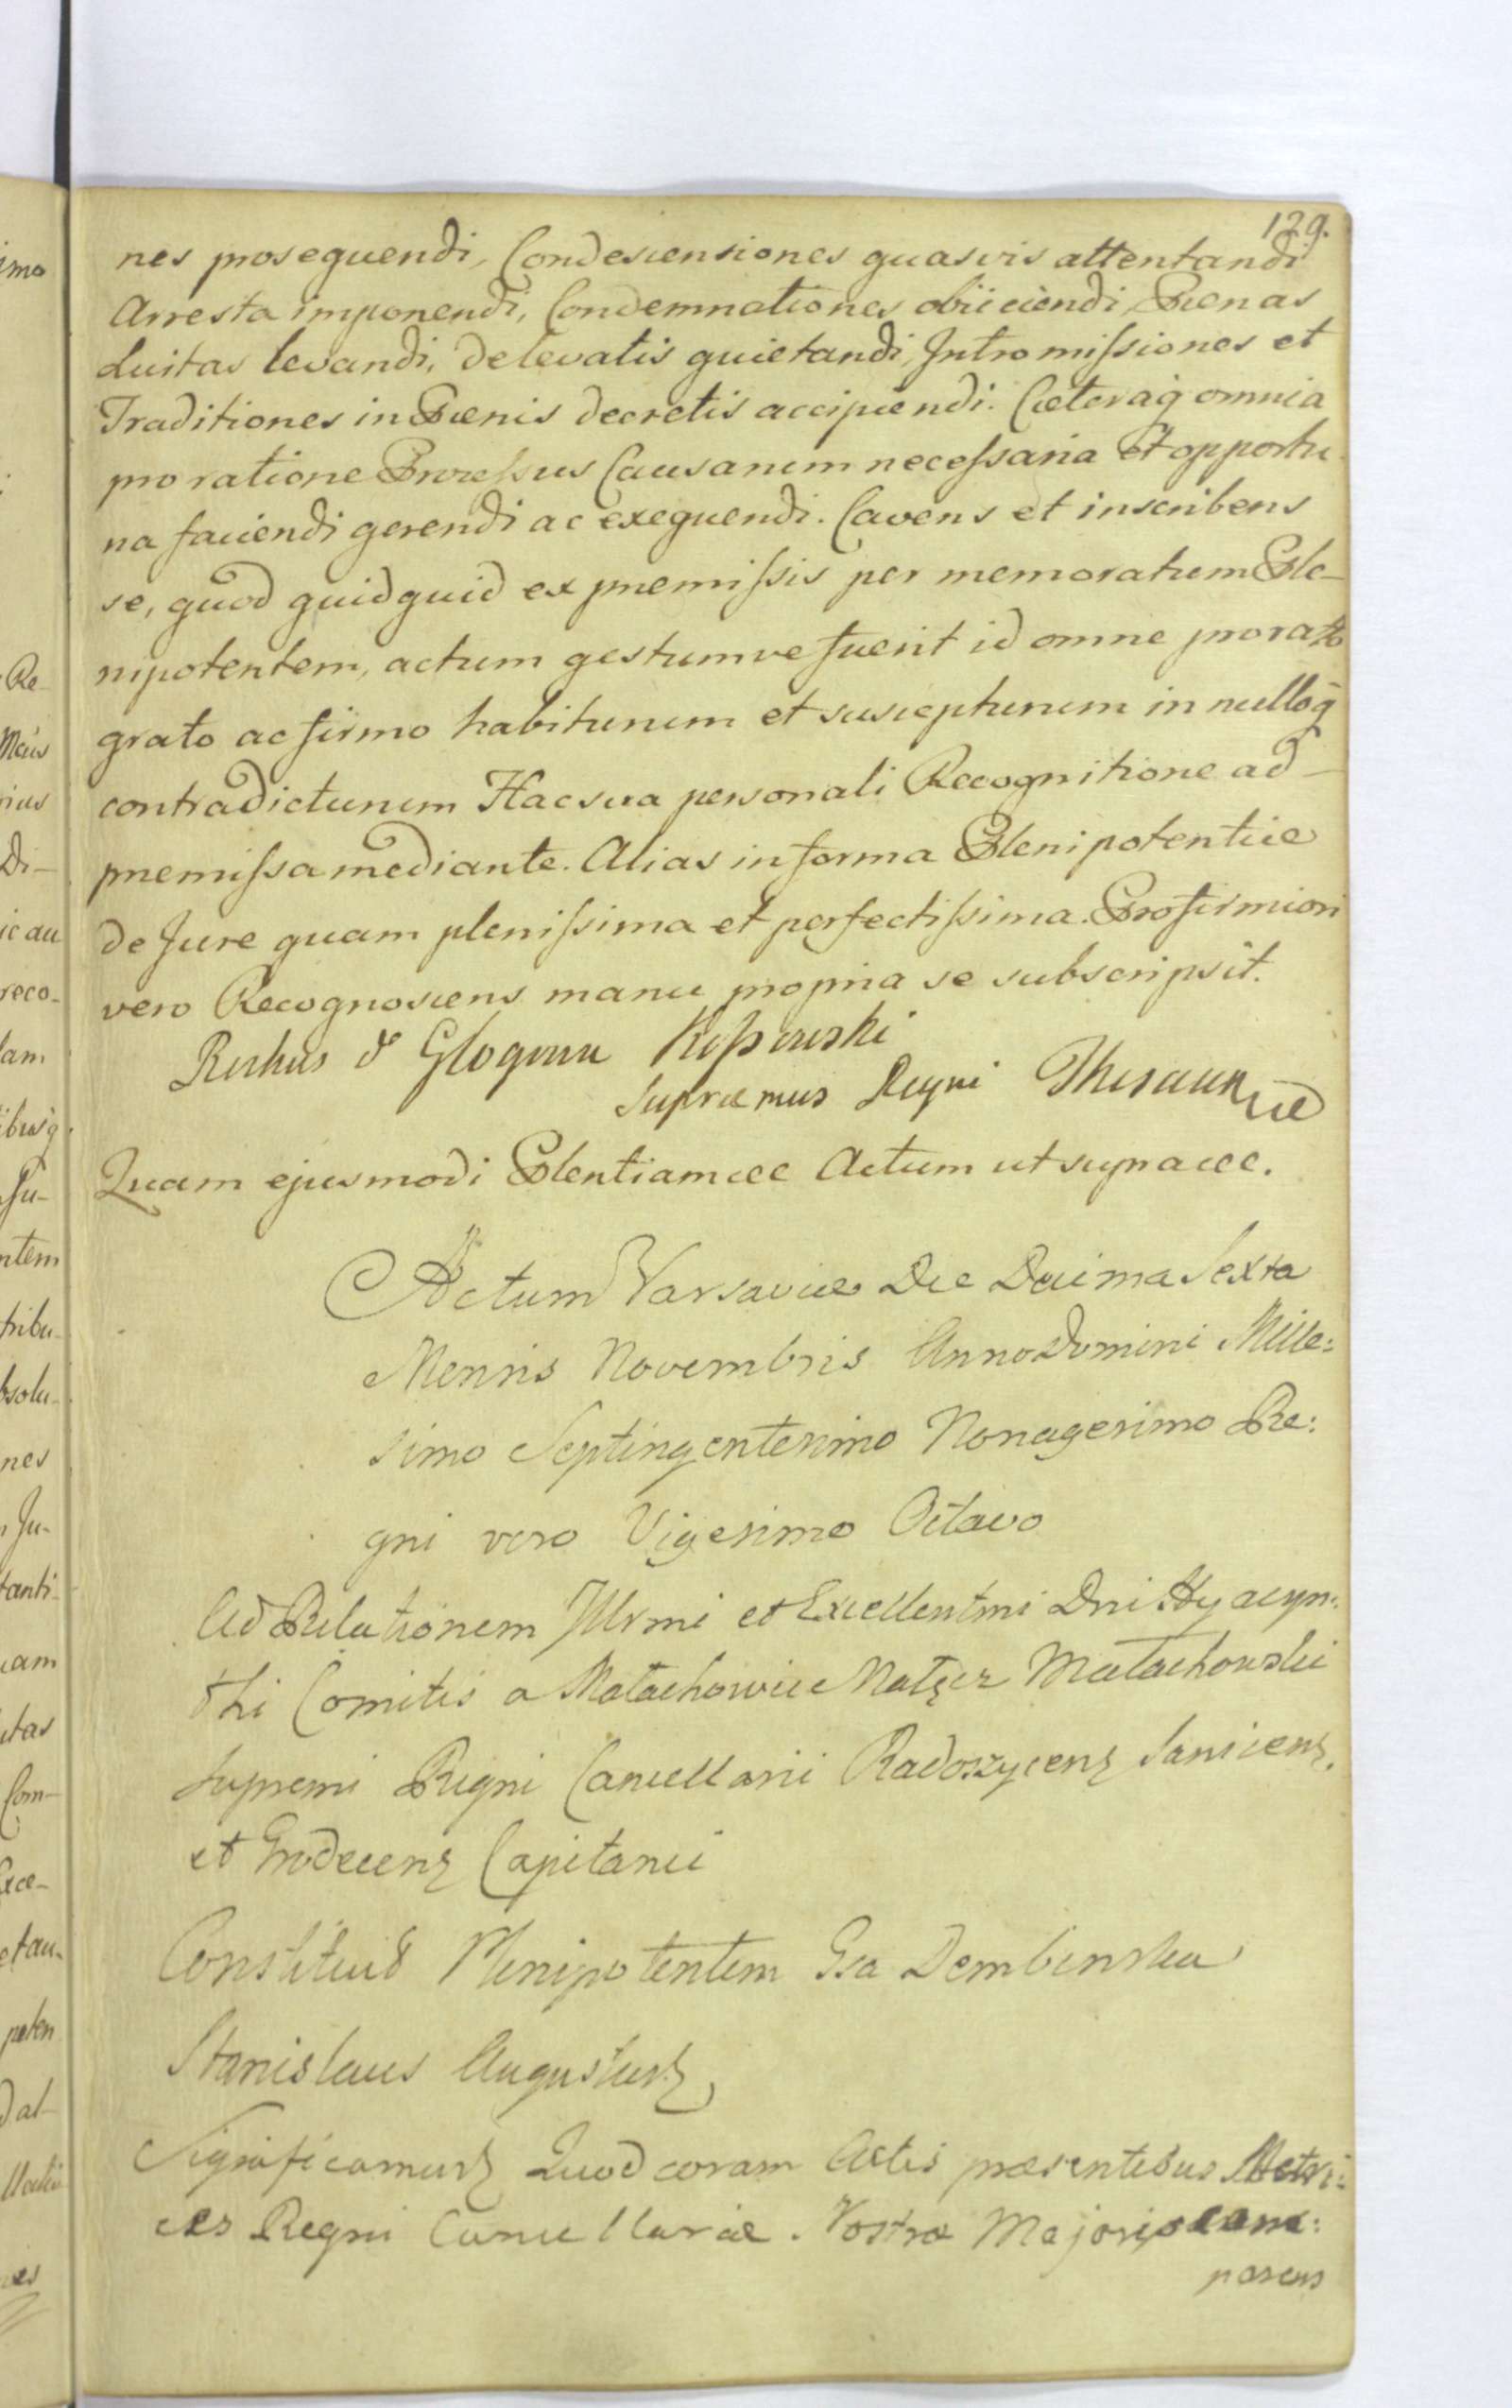 129.
nes prosequendi, Condescensiones quasvis attentandi
Arresta imponendi, Condemnationes obiiciendi, Pœnas
Luitas levandi, de levatis quietandi, Intromissiones et
Traditiones in Bœnis decretis accipiendi. Cæteraq̃ omnia
pro ratione Processus Causarum necessaria et opportu
na faciendi gerendi ac exequendi. Cavens et inscribens
se, quod quidquid ex præmissis per memoratum Ple-
nipotentem, actum gestumve fuerit id omne pro rato
grato ac firmo habiturum et suscepturum in nulloq̃
contradicturum Hac sua personali Recognitione ad-
præmissa mediante. Alias in forma Plenipotentiæ
de Jure quam plenissima et perfectissima. Pro firmiori
vero Recognoscens manu propria se subscripsit.
Rochus d Glogowa Kossowski
Supræmus Regni Thesaur
Quam ejusmodi Plentiam ecc Actum ut supra ecc.
Actum Varsaviæ Die Decima Sexta
Mensis Novembris Anno Domini Mille:
simo Septingentesimo Nonagesimo Re:
gni vero Vigesimo Octavo
Ad Relationem Illrmi et Excellentmi Dni Hyacyn:
thi Comitis a Małachowice Nałęcz Małachowski
Supremi Regni Cancellarii Radoszycenz Sanicenz.
et Grodecenz Capitanei
Constituit Plenipotentem Gsa Dembinska
Stanislaus Augustus
Significamus Quod coram Actis præsentibus Metri:
ces Regni Cancellariæ. Nostræ Majoris com:
parens